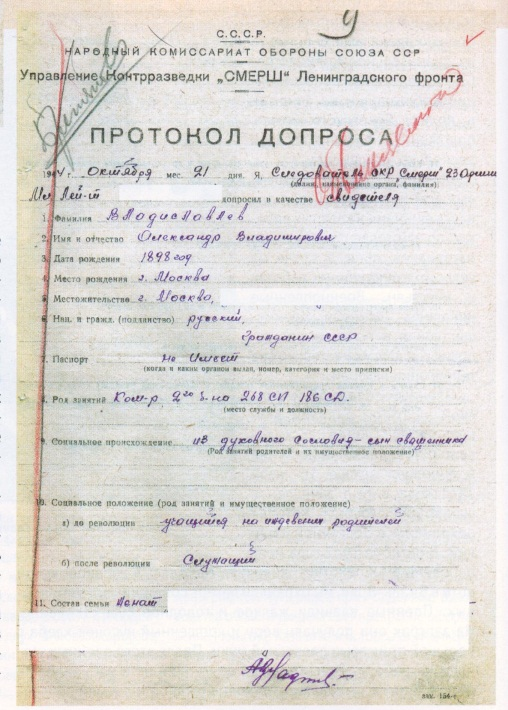 9
С.С.С.Р.
НАРОДНЫЙ КОМИССАРИАТ ОБОРОНЫ СОЮЗА ССР
Управление Контрразведки „СМЕРШ" Ленинградского фронта
ПРОТОКОЛ ДОПРОСА
1944 г. октября мес. 21 дня. Я, Следователь ОКР Смерш 23 Армии
(звание, наименование органа, фамилия)
Мл. Лей-т допросил в качестве свидетеля
1. Фамилия Владиславлев
2. Имя и отчество Александр Владимирович
3. Дата рождения 1898 год
4. Место рождения г. Москва
5. Местожительство г. Москва,
6. Нац. и гражд. (подданство) русский,
гражданин СССР
7. Паспорт не имеет
(когда и каким органом выдан, номер, категория и место прописки)
8. Род занятий Ком-р 2го б-на 268 СП 186 СД.
(место службы и должность)
9. Социальное происхождение из духовного сословия - сын священника
(Род занятий родителей и их имущественное положение)
10. Социальное положение (род занятий и имущественное положение)
а) до революции учащийся на иждевении родителей
б) после революции Служащий
11. Состав семьи женат